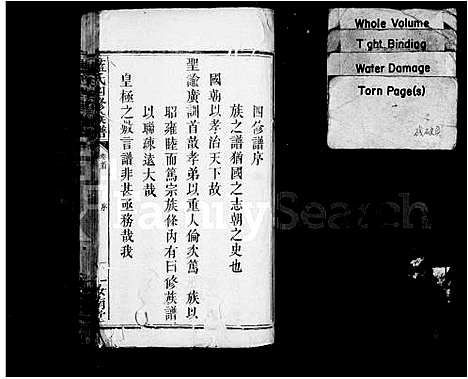 四修譜序
族之譜猶國之志朝之史也
國朝以孝治天下故
聖諭廣訓首敦孝弟以重人倫次篤 族以
昭雍睦而篤宗族條內有曰修族譜
以聯疎遠大哉
皇極之敷言譜非甚亟務哉我
氏四修族譜
卷首
序
Whole Volume
Tight Binding
Water Damage
Torn Page(s)
FamilySearch